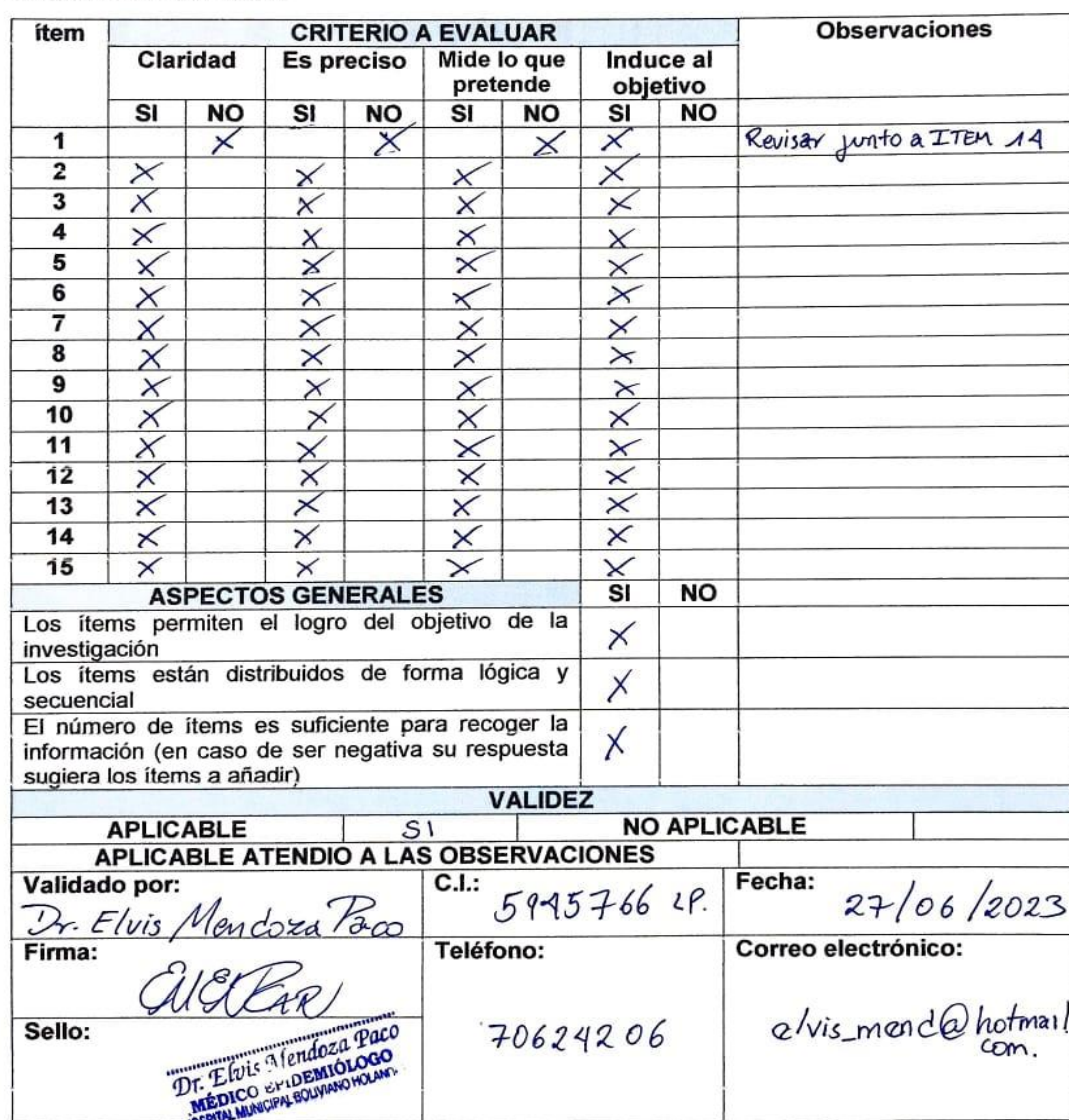 ítem CRITERIO A EVALUAR Observaciones
Claridad Es preciso Mide lo que pretende Induce al objetivo
SI NO SI NO SI NO SI NO
1 X X X X Revisar junto a ITEM 14
2 X X X X
3 X X X X
4 X X X X
5 X X X X
6 X X X X
7 X X X X
8 X X X X
9 X X X X
10 X X X X
11 X X X X
12 X X X X
13 X X X X
14 X X X X
15 X X X X
ASPECTOS GENERALES SI NO
Los ítems permiten el logro del objetivo de la
investigación X
Los ítems están distribuidos de forma lógica y
secuencial X
El número de ítems es suficiente para recoger la
información (en caso de ser negativa su respuesta X
sugiera los ítems a añadir)
VALIDEZ
APLICABLE SI NO APLICABLE
APLICABLE ATENDIO A LAS OBSERVACIONES
Validado por: C.I.: Fecha:
Dr. Elvis Mendoza Paco 5945766 LP. 27/06/2023
Firma: Teléfono: Correo electrónico:
70624206 elvis_mend@hotmail
com.
Sello:
Dr. Elvis Mendoza Paco
MÉDICO EPIDEMIÓLOGO
HOSPITAL MUNICIPAL BOLIVIANO HOLAND